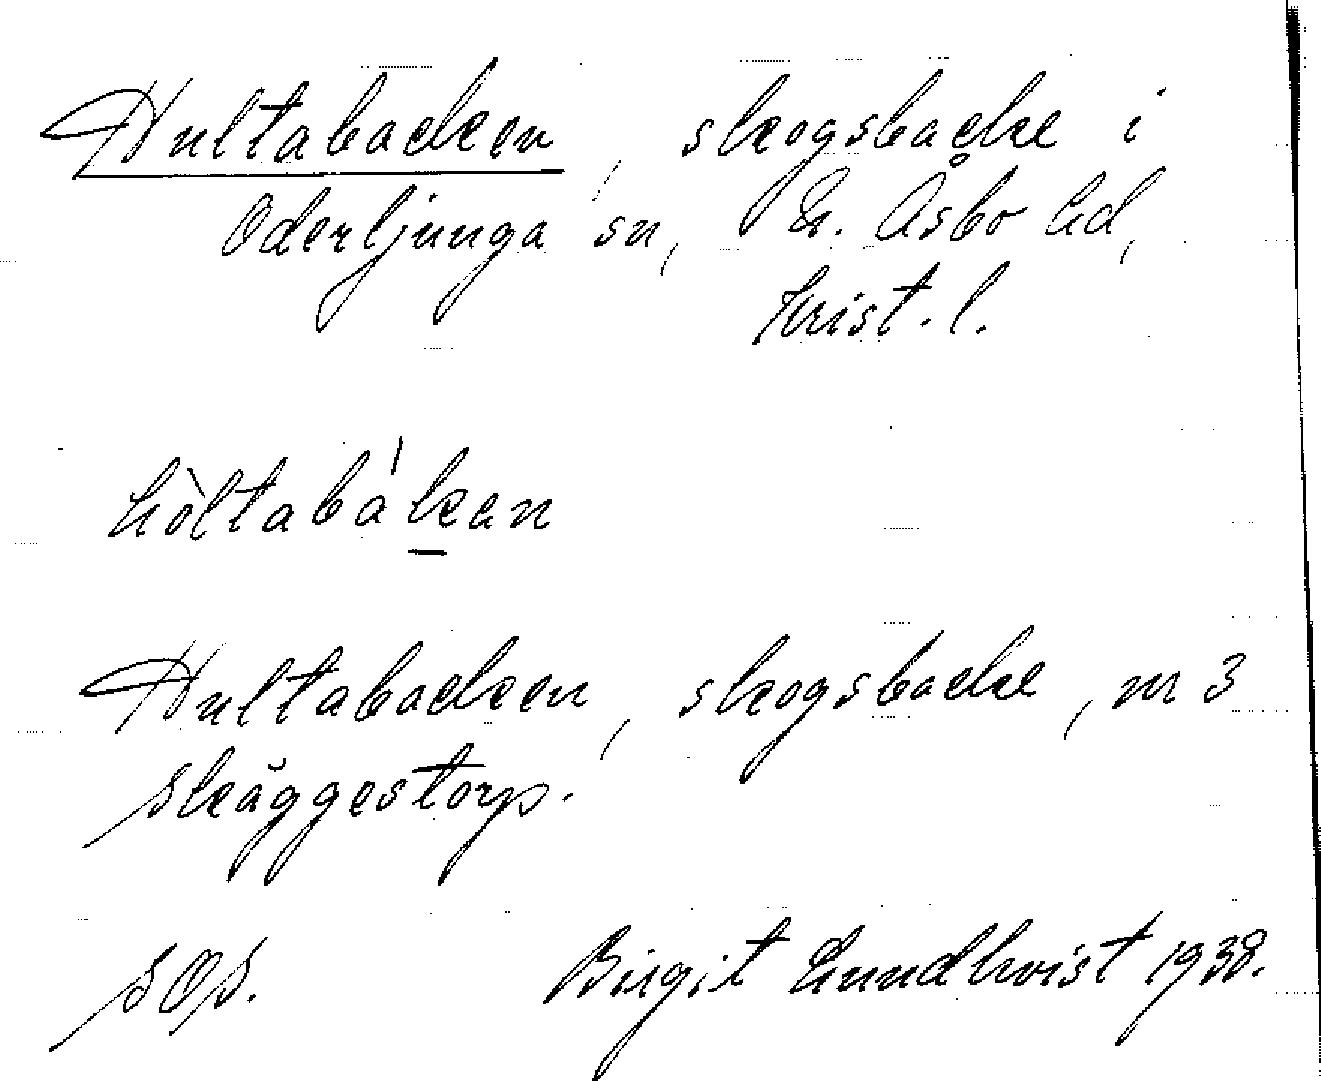 Hultabacken, skogsbacke i
Oderljunga sn, N. Åsbo hd,
Krist. l.
hòltabákan
Hultabacken, skogsbacke, nr 3
Skäggestorp.
SOS. Birgit Lundkvist 1938.